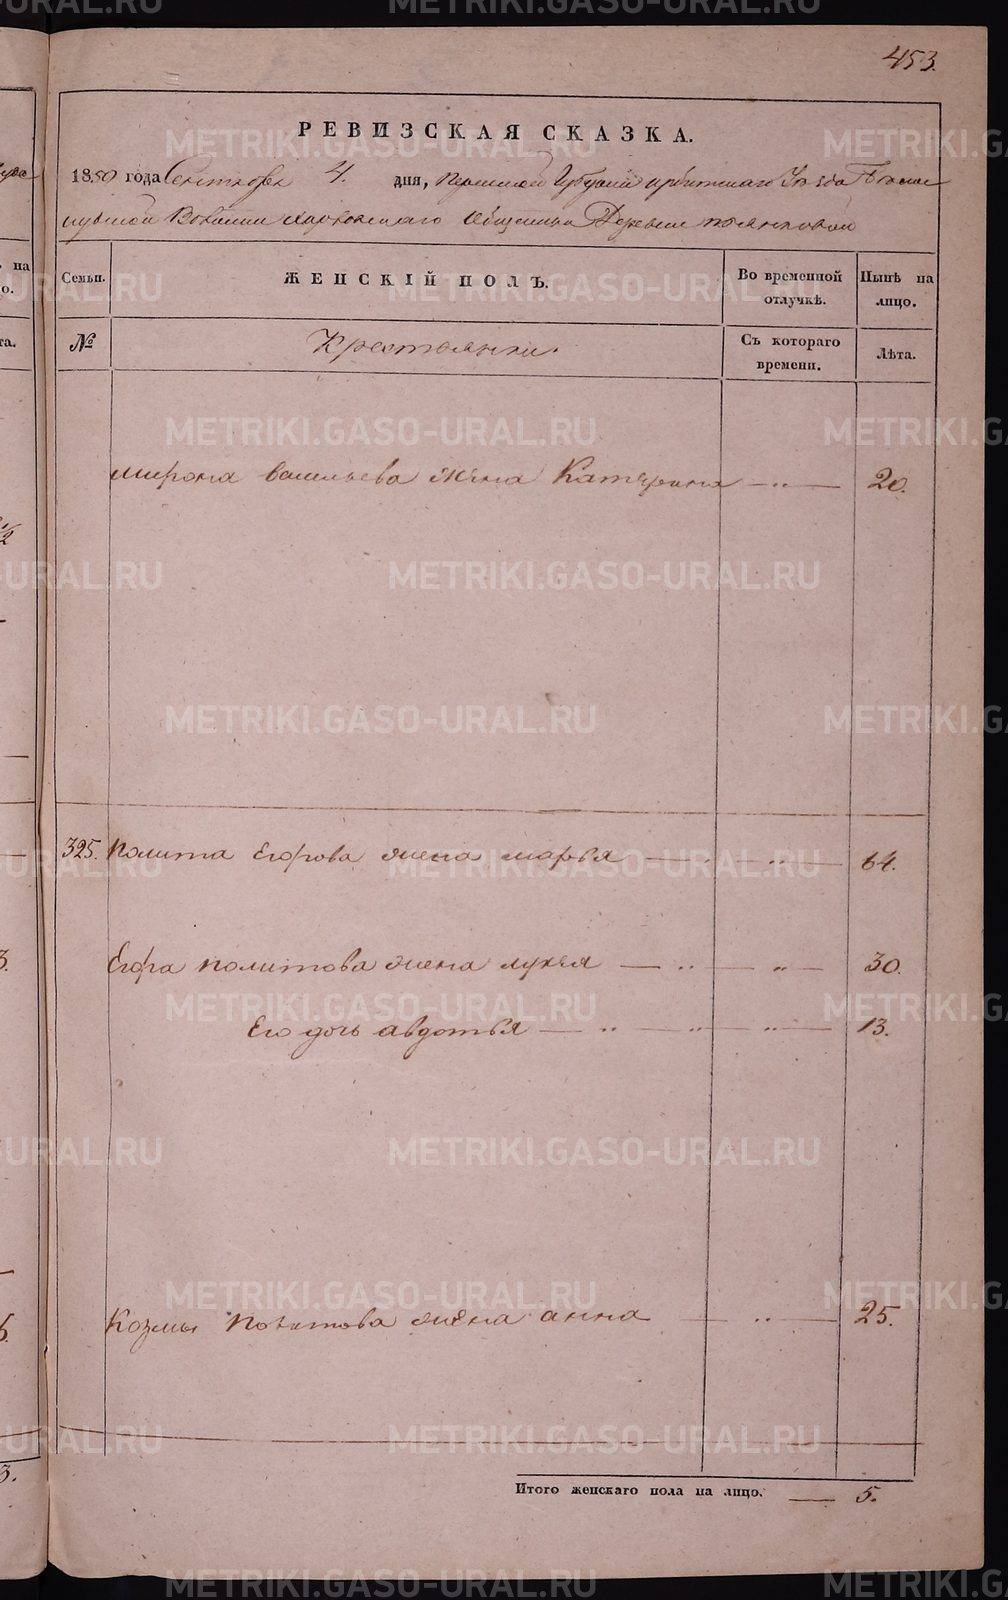 453.
РЕВИЗСКАЯ СКАЗКА.
1850 года Сентября 4. дня, Пермской Губернии ирбитского Уѣзда Бѣло
слудской Волости харловскаго общества Деревни
Семьи.
ЖЕНСКІЙ ПОЛЪ.
Во временной отлучкѣ.
Нынѣ на лицо.
№
Крестьянки.
Съ котораго времени.
Лѣта.
мирона васильева жена Катерина — „ — 20.
325. полита Егорова жена марья — „ — 64.
Егора политова жена лукья — „ — „ — 30.
Его дочь авдотья — „ — „ — „ — 13.
Козмы политова жена анна — „ — 25.
Итого женскаго пола на лицо. — 5.
METRIKI.GASO-URAL.RU